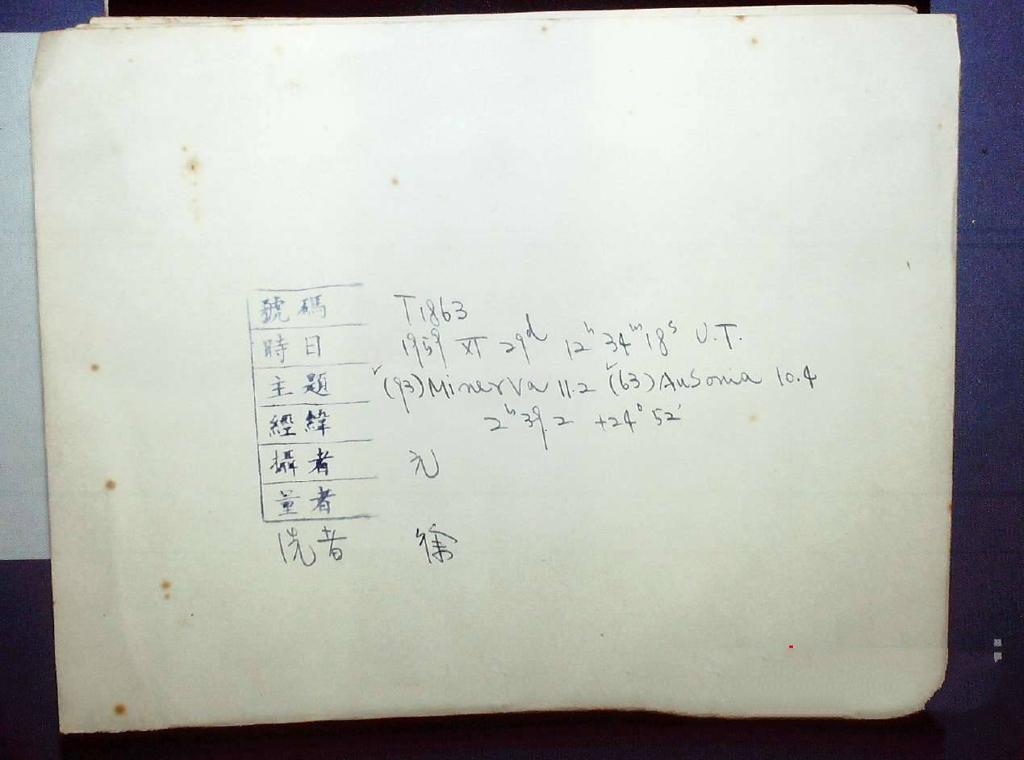 號碼 T1863
時日 1959 XI 29ᵈ 12ʰ 34ᵐ 18ˢ U.T.
主題 ✓(93) Minerva 11.2 ✓(63) Ausonia 10.4
經緯 2ʰ 39.2 +24° 52'
攝者 元
量者
洗者 徐